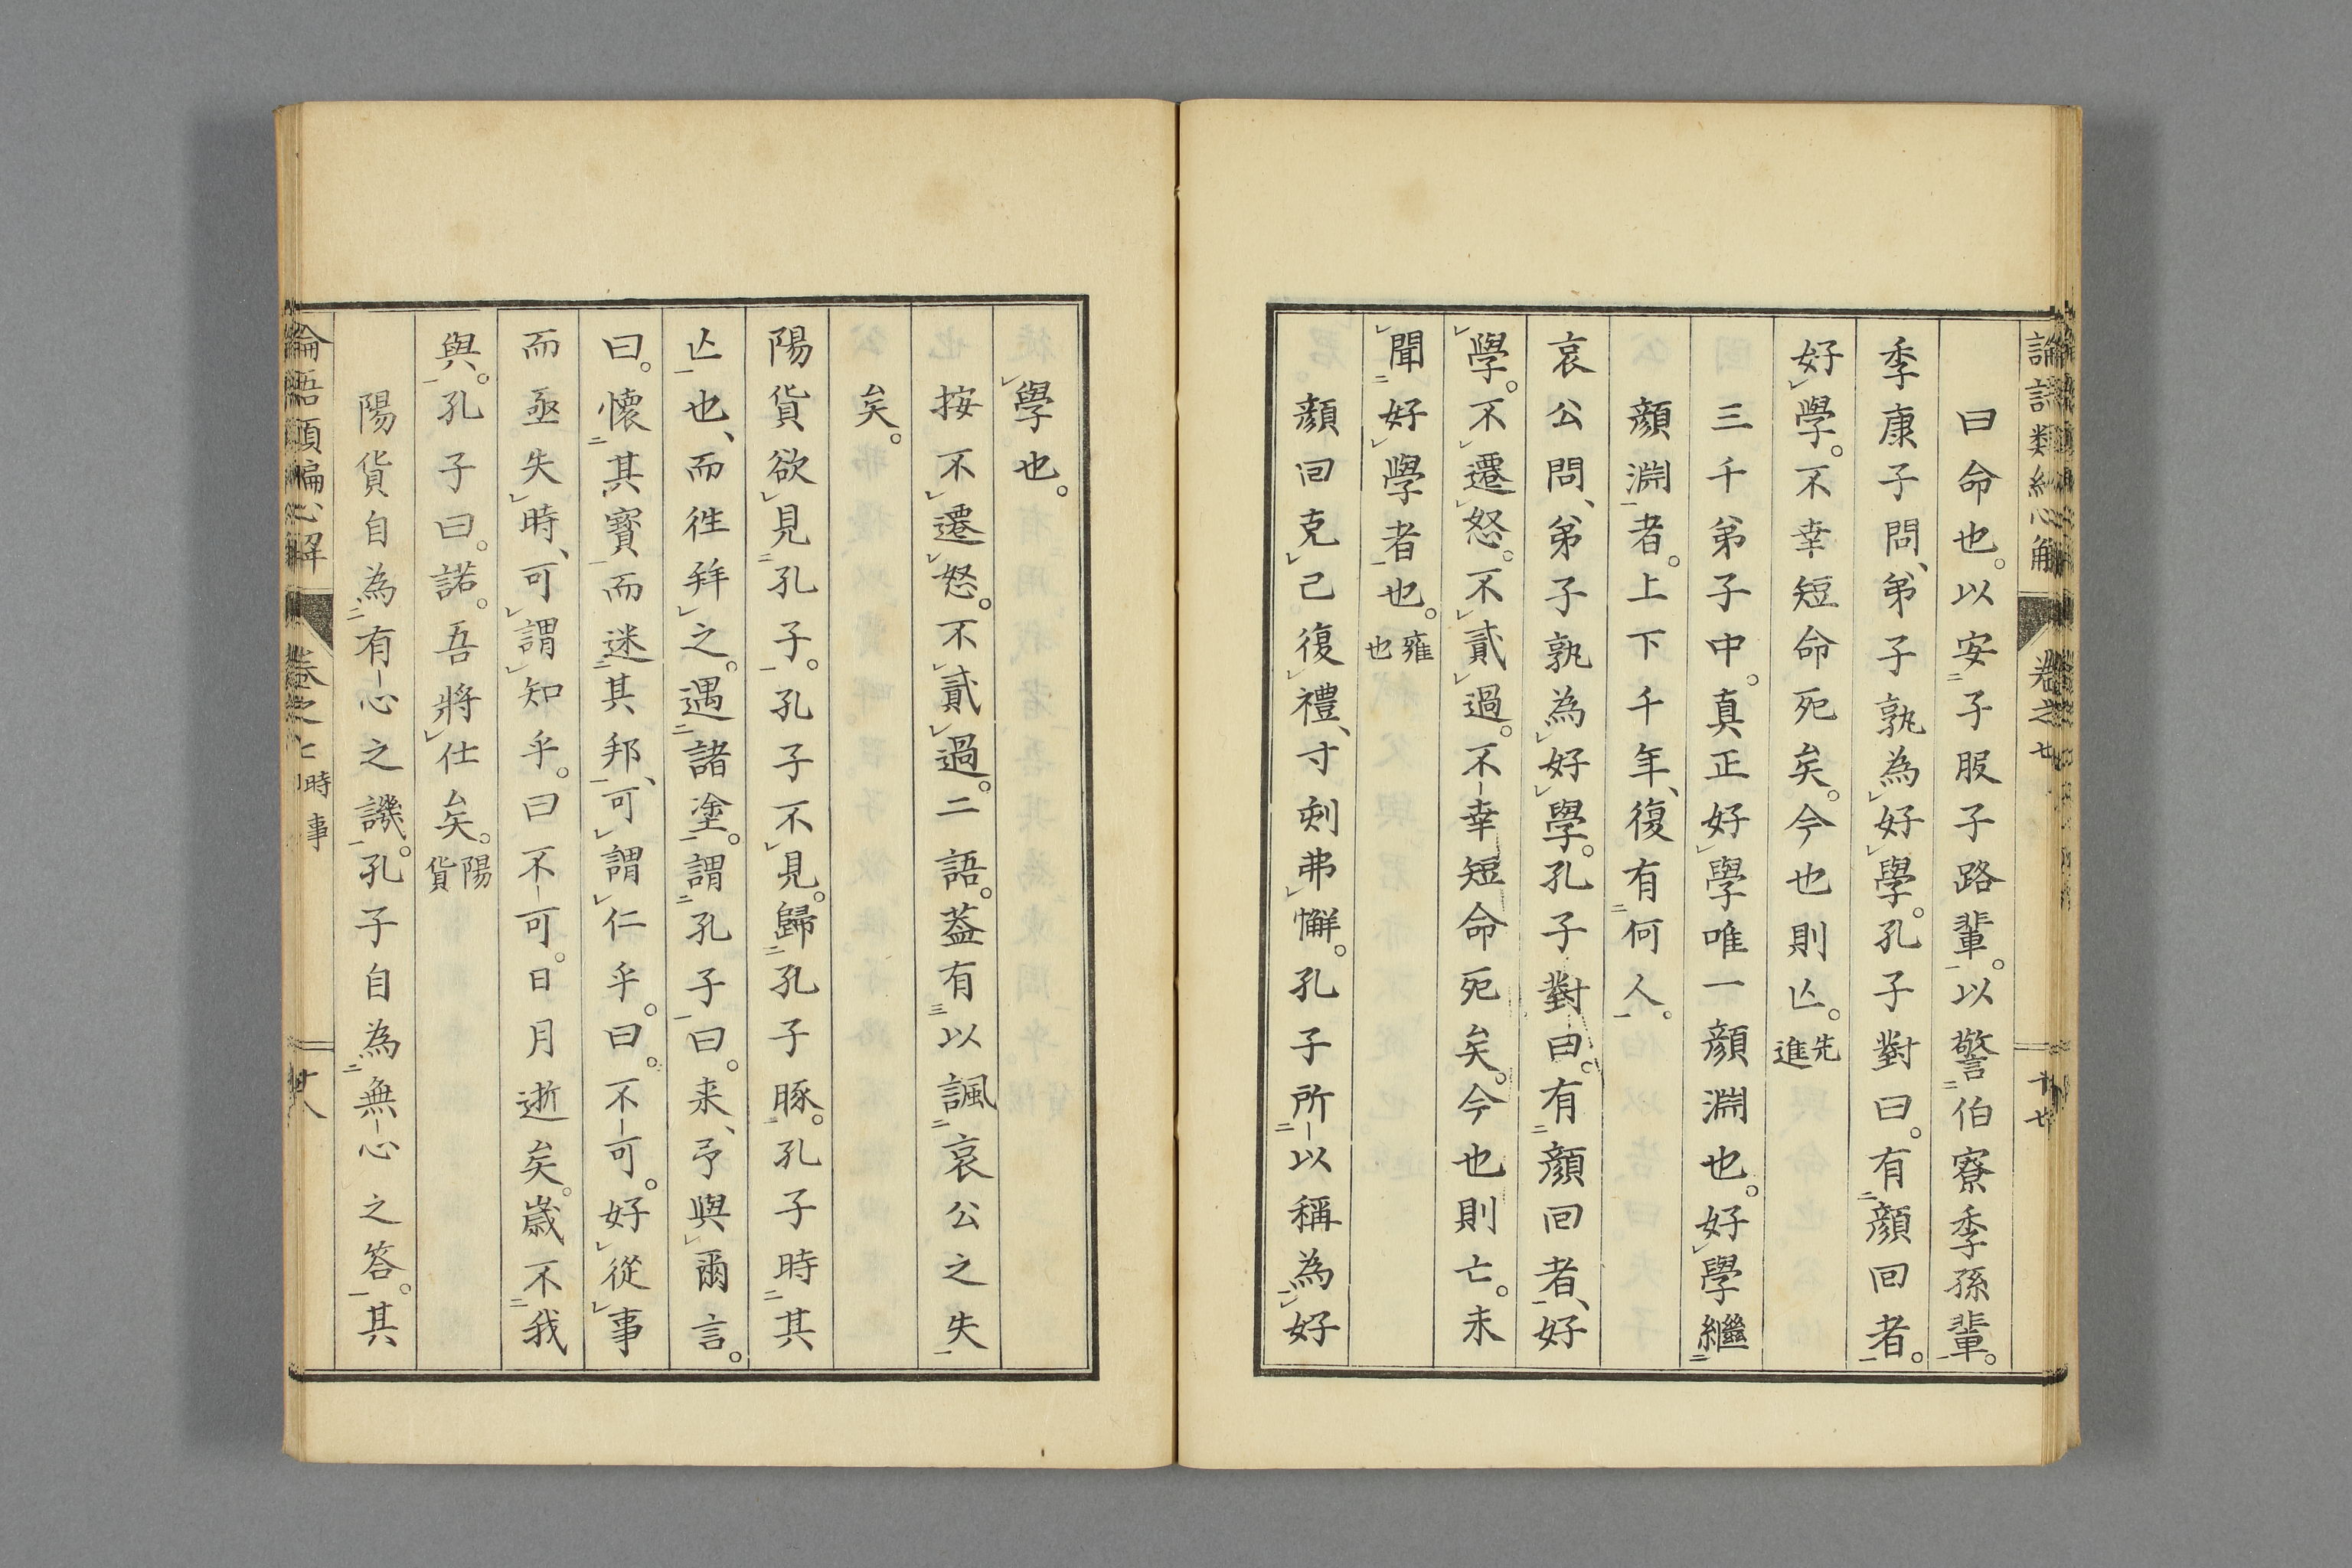 曰命也。以安子服子路輩。以警伯寮季孫輩。
季康子問、弟子孰為好學。孔子對曰。有顏回者。
好學。不幸短命死矣。今也則亾。先進
三千弟子中。真正好學唯一顏淵也。好學繼
顏淵者。上下千年、復有何人。
哀公問、弟子孰為好學。孔子對曰。有顏回者、好
學。不遷怒。不貳過。不幸短命死矣。今也則亡。未
聞好學者也。雍也
顏回克己復禮、寸刻弗懈。孔子所以稱為好
學也。
按不遷怒。不貳過。二語。蓋有以諷哀公之失
矣。
陽貨欲見孔子。孔子不見。歸孔子豚。孔子時其
亾也、而徃拜之。遇諸塗。謂孔子曰。来、予與爾言。
曰。懷其寳而迷其邦、可謂仁乎。曰。不可。好從事
而亟失時、可謂知乎。曰不可。日月逝矣。歲不我
與。孔子曰。諾。吾將仕矣。陽貨
陽貨自為有心之譏。孔子自為無心之答。其